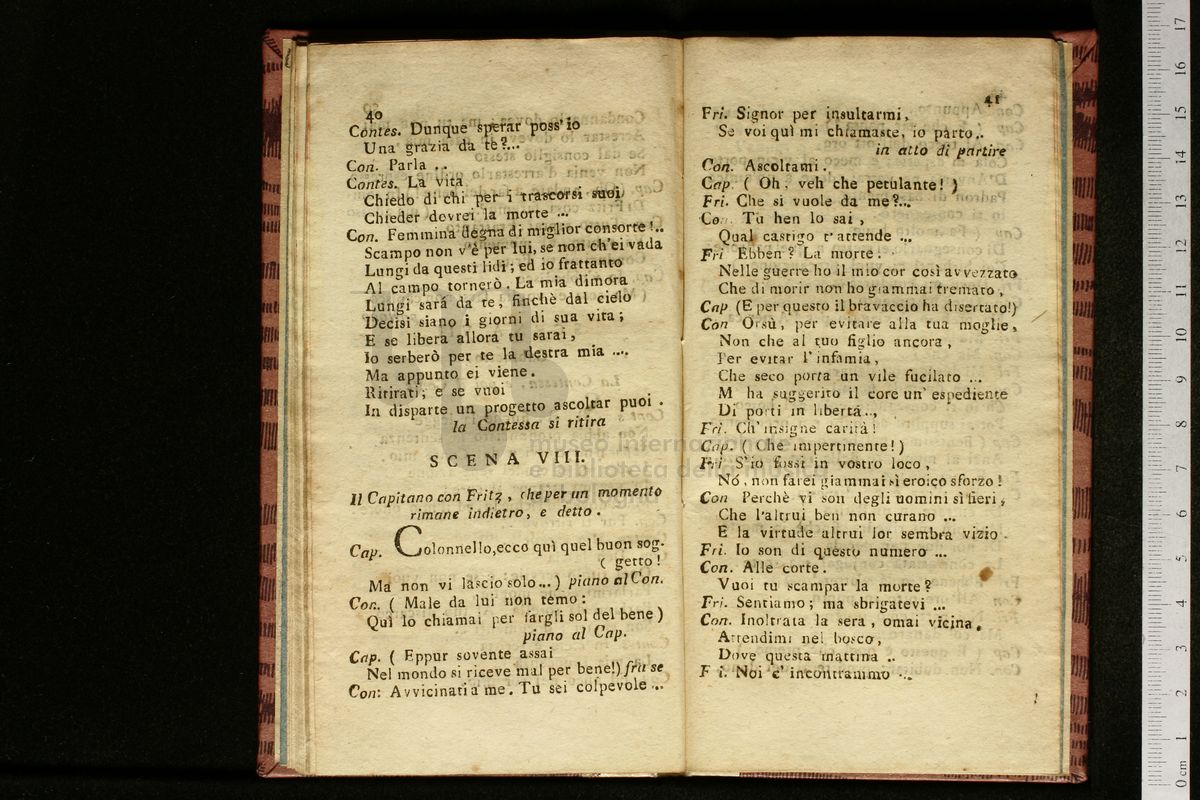 40
Contes. Dunque sperar poss'io
Una grazia da te?...
Con. Parla ..
Contes. La vita
Chiedo di chi per i trascorsi suoi
Chieder dovrei la morte ...
Con. Femmina degna di miglior consorte!..
Scampo non v'è per lui, se non ch'ei vada
Lungi da questi lidi; ed io frattanto
Al campo tornerò. La mia dimora
Lungi sará da te, finchè dal cielo
Decisi siano i giorni di sua vita;
E se libera allora tu sarai,
Io serberò per te la destra mia ....
Ma appunto ei viene.
Ritirati; e se vuoi
In disparte un progetto ascoltar puoi.
la Contessa si ritira
SCENA VIII.
Il Capitano con Fritz, che per un momento
rimane indietro, e detto.
Cap. Colonnello, ecco quì quel buon sog-
( getto!
Ma non vi lascio solo...) piano al Con.
Con. ( Male da lui non temo:
Quì lo chiamai per fargli sol del bene)
piano al Cap.
Cap. ( Eppur sovente assai
Nel mondo si riceve mal per bene!) fra se
Con: Avvicinati a me. Tu sei colpevole ...
41
Fri. Signor per insultarmi,
Se voi quì mi chiamaste, io parto..
in atto di partire
Con. Ascoltami.
Cap. ( Oh, veh che petulante! )
Fri. Che si vuole da me?...
Con. Tu hen lo sai,
Qual castigo t'attende ...
Fri Ebben? La morte:
Nelle guerre ho il mio cor così avvezzato
Che di morir non ho giammai tremato,
Cap (E per questo il bravaccio ha disertato!)
Con Orsù, per evitare alla tua moglie,
Non che al tuo figlio ancora,
Per evitar l'infamia,
Che seco porta un vile fucilato ...
M ha suggerito il core un' espediente
Di porti in libertá..,
Fri. Ch'insigne carità!
Cap. ( Che impertinente! )
Fri S'io fossi in vostro loco,
Nó, non farei giammai sì eroico sforzo!
Con Perchè vi son degli uomini sì fieri,
Che l'altrui ben non curano ...
E la virtude altrui lor sembra vizio.
Fri. Io son di questo numero ...
Con. Alle corte.
Vuoi tu scampar la morte?
Fri. Sentiamo; ma sbrigatevi ...
Con. Inoltrata la sera, omai vicina,
Attendimi nel bosco,
Dove questa mattina ..
F i. Noi c' incontrammo ...
museo internazionale
e biblioteca della musica
di bologna
0 cm 1 2 3 4 5 6 7 8 9 10 11 12 13 14 15 16 17